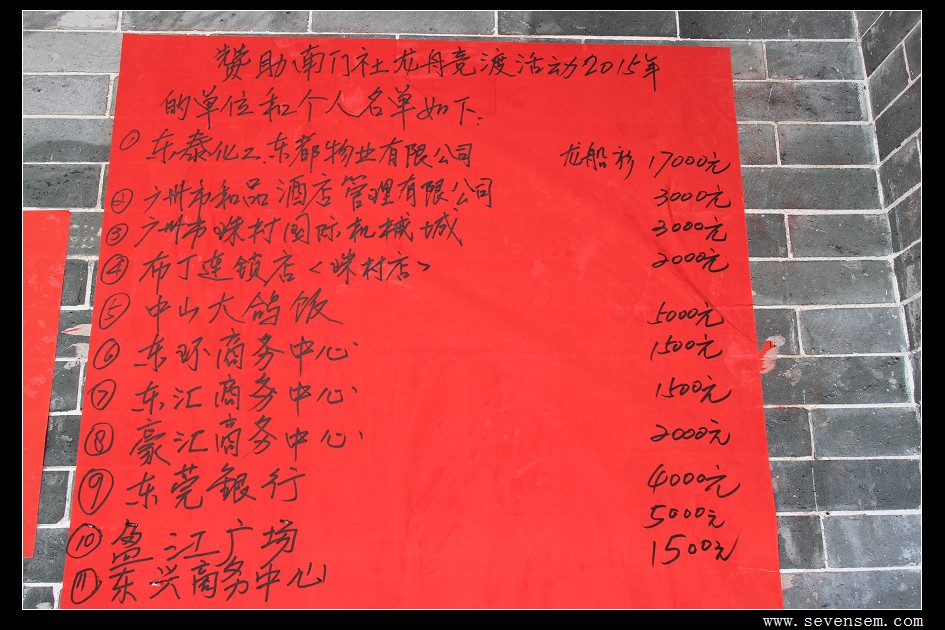 赞助南门社龙舟竞渡活动2015年
的单位和个人名单如下:
① 东泰化工.东都物业有限公司 龙船衫 17000元
② 广州市和品酒店管理有限公司 3000元
③ 广州市珠村国际机械城 3000元
④ 布丁连锁店<珠村店> 2000元
⑤ 中山大鸽饭 5000元
⑥ 东环商务中心 1500元
⑦ 东汇商务中心 1500元
⑧ 豪汇商务中心 2000元
⑨ 东莞銀行 4000元
⑩ 盈江广场 5000元
⑪ 东兴商务中心 1500元
www.sevensem.com